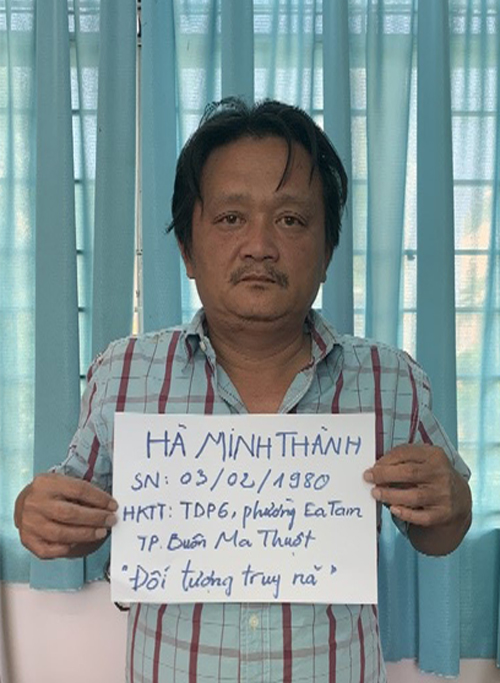 HÀ MINH THÀNH
SN: 03/02/1980
HKTT: TDP6, phường EaTam
TP. Buôn Ma Thuột
"Đối tượng truy nã"